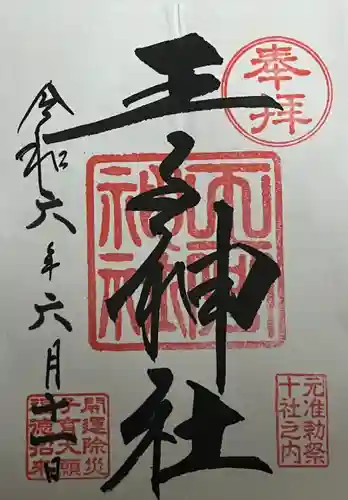 奉拝
王子神社
王子神社
元准勅祭
十社之内
令和六年六月十一日
開運除災
子育大願